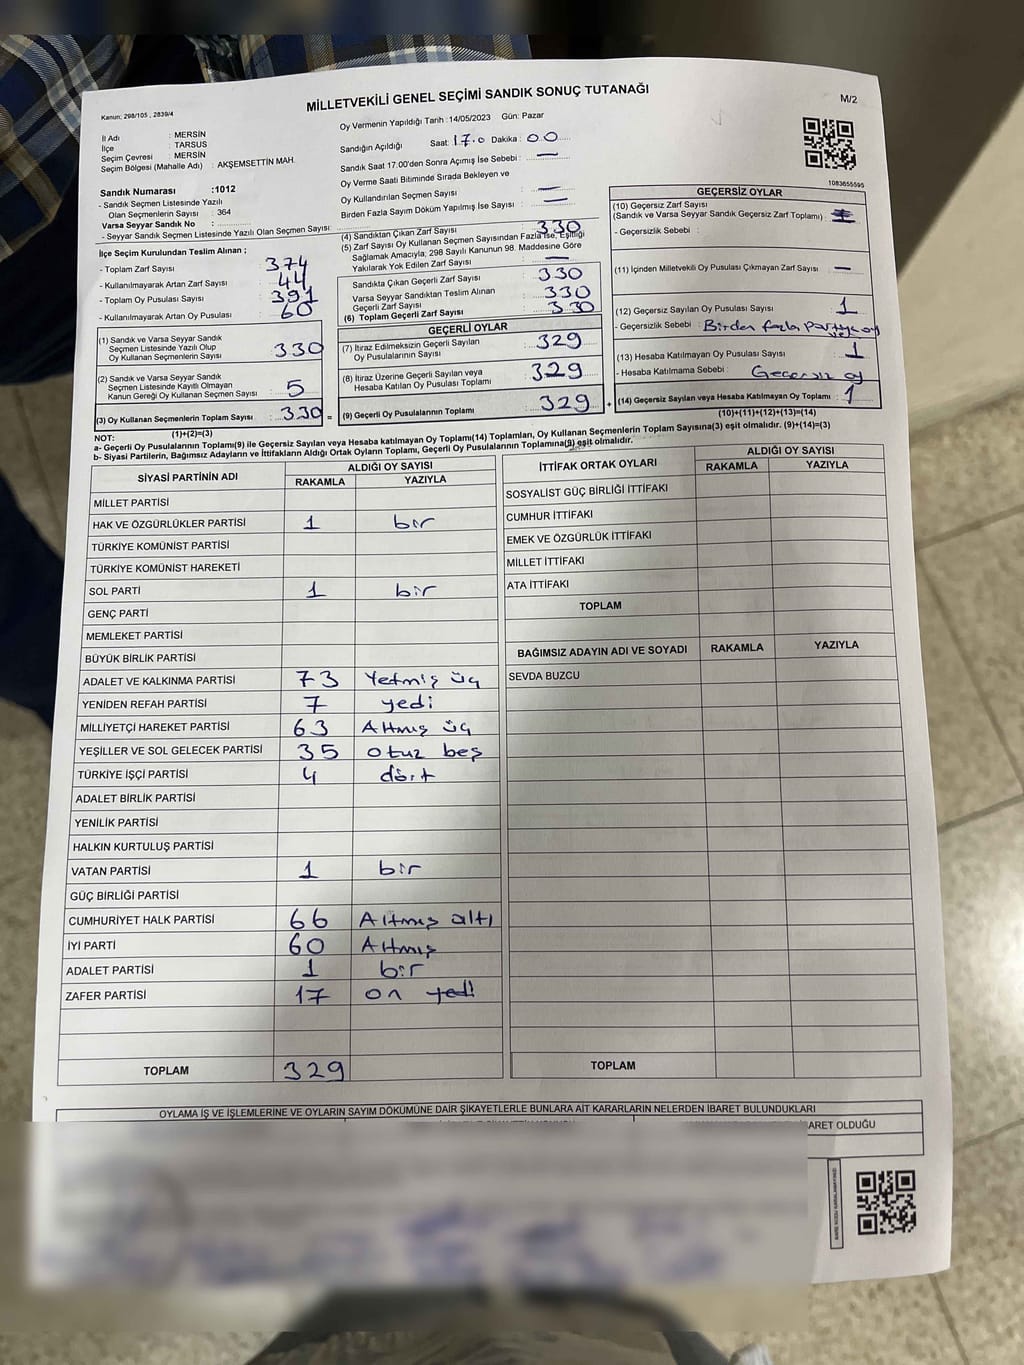 MİLLETVEKİLİ GENEL SEÇİMİ SANDIK SONUÇ TUTANAĞI
M/2
Kanun; 298/105 , 2839/4
İl Adı : MERSİN
İlçe : TARSUS
Seçim Çevresi : MERSİN
Seçim Bölgesi (Mahalle Adı) : AKŞEMSETTİN MAH.
Sandık Numarası :1012
- Sandık Seçmen Listesinde Yazılı
Olan Seçmenlerin Sayısı : 364
Varsa Seyyar Sandık No :
- Seyyar Sandık Seçmen Listesinde Yazılı Olan Seçmen Sayısı:
Oy Vermenin Yapıldığı Tarih : 14/05/2023 Gün: Pazar
Sandığın Açıldığı Saat: 17.0 Dakika : 00
Sandık Saat 17.00'den Sonra Açımış İse Sebebi : —
Oy Verme Saati Bitiminde Sırada Bekleyen ve
Oy Kullandırılan Seçmen Sayısı : —
Birden Fazla Sayım Döküm Yapılmış İse Sayısı : —
1083655595
İlçe Seçim Kurulundan Teslim Alınan ;
- Toplam Zarf Sayısı : 374
- Kullanılmayarak Artan Zarf Sayısı : 44
- Toplam Oy Pusulası Sayısı : 391
- Kullanılmayarak Artan Oy Pusulası : 60
(1) Sandık ve Varsa Seyyar Sandık
Seçmen Listesinde Yazılı Olup
Oy Kullanan Seçmenlerin Sayısı : 330
(2) Sandık ve Varsa Seyyar Sandık
Seçmen Listesinde Kayıtlı Olmayan
Kanun Gereği Oy Kullanan Seçmen Sayısı : 5
(3) Oy Kullanan Seçmenlerin Toplam Sayısı : 330 =
(1)+(2)=(3)
(4) Sandıktan Çıkan Zarf Sayısı : 330
(5) Zarf Sayısı Oy Kullanan Seçmen Sayısından Fazla İse, Eşitliği
Sağlamak Amacıyla; 298 Sayılı Kanunun 98. Maddesine Göre
Yakılarak Yok Edilen Zarf Sayısı : —
Sandıkta Çıkan Geçerli Zarf Sayısı : 330
Varsa Seyyar Sandıktan Teslim Alınan
Geçerli Zarf Sayısı : 330
(6) Toplam Geçerli Zarf Sayısı : 330
GEÇERLİ OYLAR
(7) İtiraz Edilmeksizin Geçerli Sayılan
Oy Pusulalarının Sayısı : 329
(8) İtiraz Üzerine Geçerli Sayılan veya
Hesaba Katılan Oy Pusulası Toplamı : 329
(9) Geçerli Oy Pusulalarının Toplamı : 329 +
GEÇERSİZ OYLAR
(10) Geçersiz Zarf Sayısı
(Sandık ve Varsa Seyyar Sandık Geçersiz Zarf Toplamı) :
- Geçersizlik Sebebi :
(11) İçinden Milletvekili Oy Pusulası Çıkmayan Zarf Sayısı : —
(12) Geçersiz Sayılan Oy Pusulası Sayısı : 1
- Geçersizlik Sebebi : Birden fazla partiye oy
(13) Hesaba Katılmayan Oy Pusulası Sayısı : 1
- Hesaba Katılmama Sebebi : Geçersiz oy
(14) Geçersiz Sayılan veya Hesaba Katılmayan Oy Toplamı : 1
(10)+(11)+(12)+(13)=(14)
NOT:
a- Geçerli Oy Pusulalarının Toplamı(9) ile Geçersiz Sayılan veya Hesaba katılmayan Oy Toplamı(14) Toplamları, Oy Kullanan Seçmenlerin Toplam Sayısına(3) eşit olmalıdır. (9)+(14)=(3)
b- Siyasi Partilerin, Bağımsız Adayların ve İttifakların Aldığı Ortak Oyların Toplamı, Geçerli Oy Pusulalarının Toplamına(9) eşit olmalıdır.
SİYASİ PARTİNİN ADI ALDIĞI OY SAYISI
RAKAMLA YAZIYLA
MİLLET PARTİSİ
HAK VE ÖZGÜRLÜKLER PARTİSİ 1 bir
TÜRKİYE KOMÜNİST PARTİSİ
TÜRKİYE KOMÜNİST HAREKETİ
SOL PARTİ 1 bir
GENÇ PARTİ
MEMLEKET PARTİSİ
BÜYÜK BİRLİK PARTİSİ
ADALET VE KALKINMA PARTİSİ 73 Yetmiş üç
YENİDEN REFAH PARTİSİ 7 yedi
MİLLİYETÇİ HAREKET PARTİSİ 63 Altmış üç
YEŞİLLER VE SOL GELECEK PARTİSİ 35 otuz beş
TÜRKİYE İŞÇİ PARTİSİ 4 dört
ADALET BİRLİK PARTİSİ
YENİLİK PARTİSİ
HALKIN KURTULUŞ PARTİSİ
VATAN PARTİSİ 1 bir
GÜÇ BİRLİĞİ PARTİSİ
CUMHURİYET HALK PARTİSİ 66 Altmış altı
İYİ PARTİ 60 Altmış
ADALET PARTİSİ 1 bir
ZAFER PARTİSİ 17 on yedi
TOPLAM 329
İTTİFAK ORTAK OYLARI ALDIĞI OY SAYISI
RAKAMLA YAZIYLA
SOSYALİST GÜÇ BİRLİĞİ İTTİFAKI
CUMHUR İTTİFAKI
EMEK VE ÖZGÜRLÜK İTTİFAKI
MİLLET İTTİFAKI
ATA İTTİFAKI
TOPLAM
BAĞIMSIZ ADAYIN ADI VE SOYADI RAKAMLA YAZIYLA
SEVDA BUZCU
TOPLAM
OYLAMA İŞ VE İŞLEMLERİNE VE OYLARIN SAYIM DÖKÜMÜNE DAİR ŞİKAYETLERLE BUNLARA AİT KARARLARIN NELERDEN İBARET BULUNDUKLARI
ARET OLDUĞU